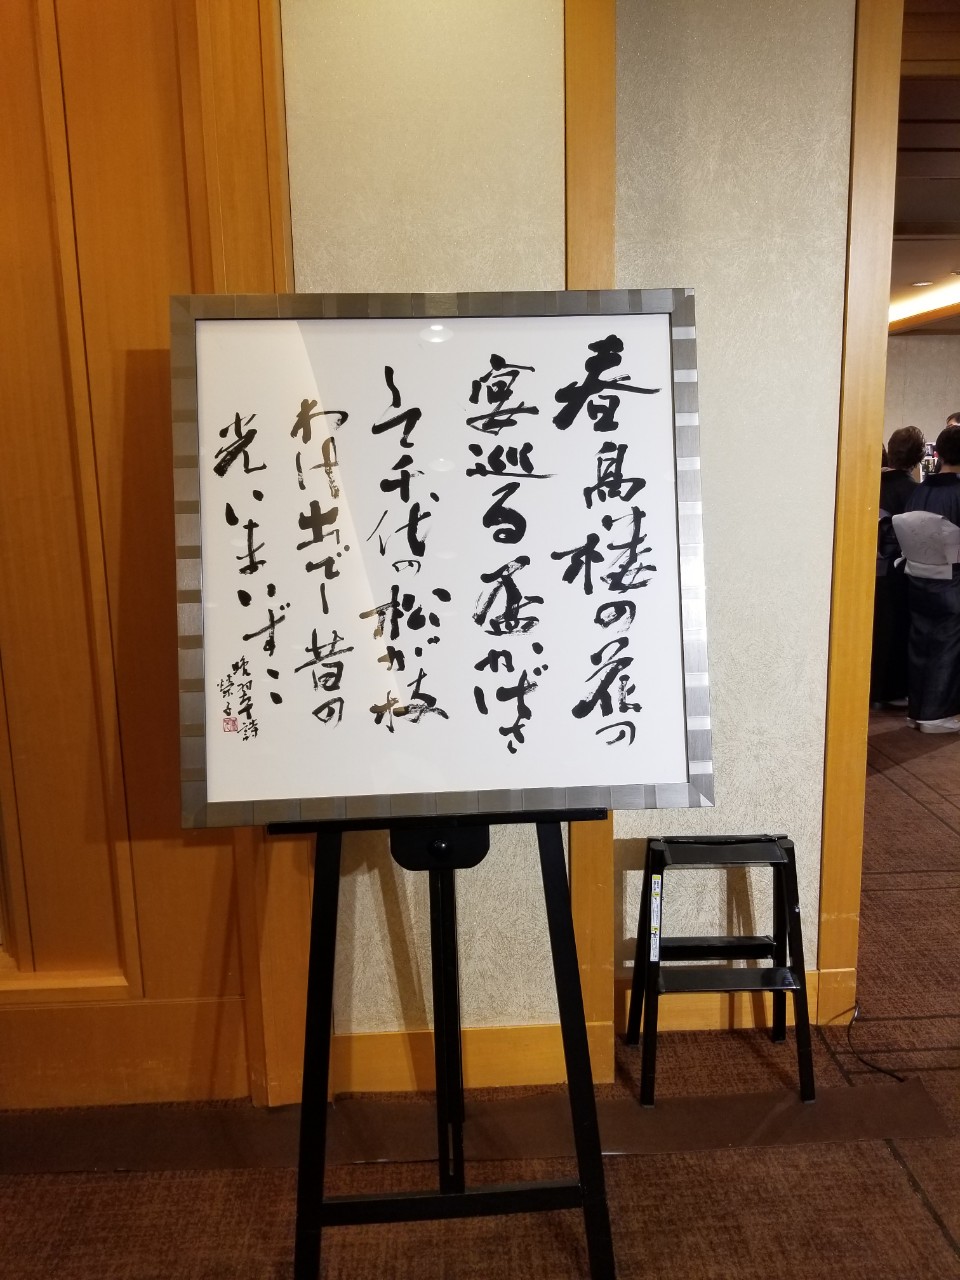 春高楼の花の
宴巡る盃かげさ
して千代の松が枝
わけ出でし昔の
光いまいずこ
晩翠詩